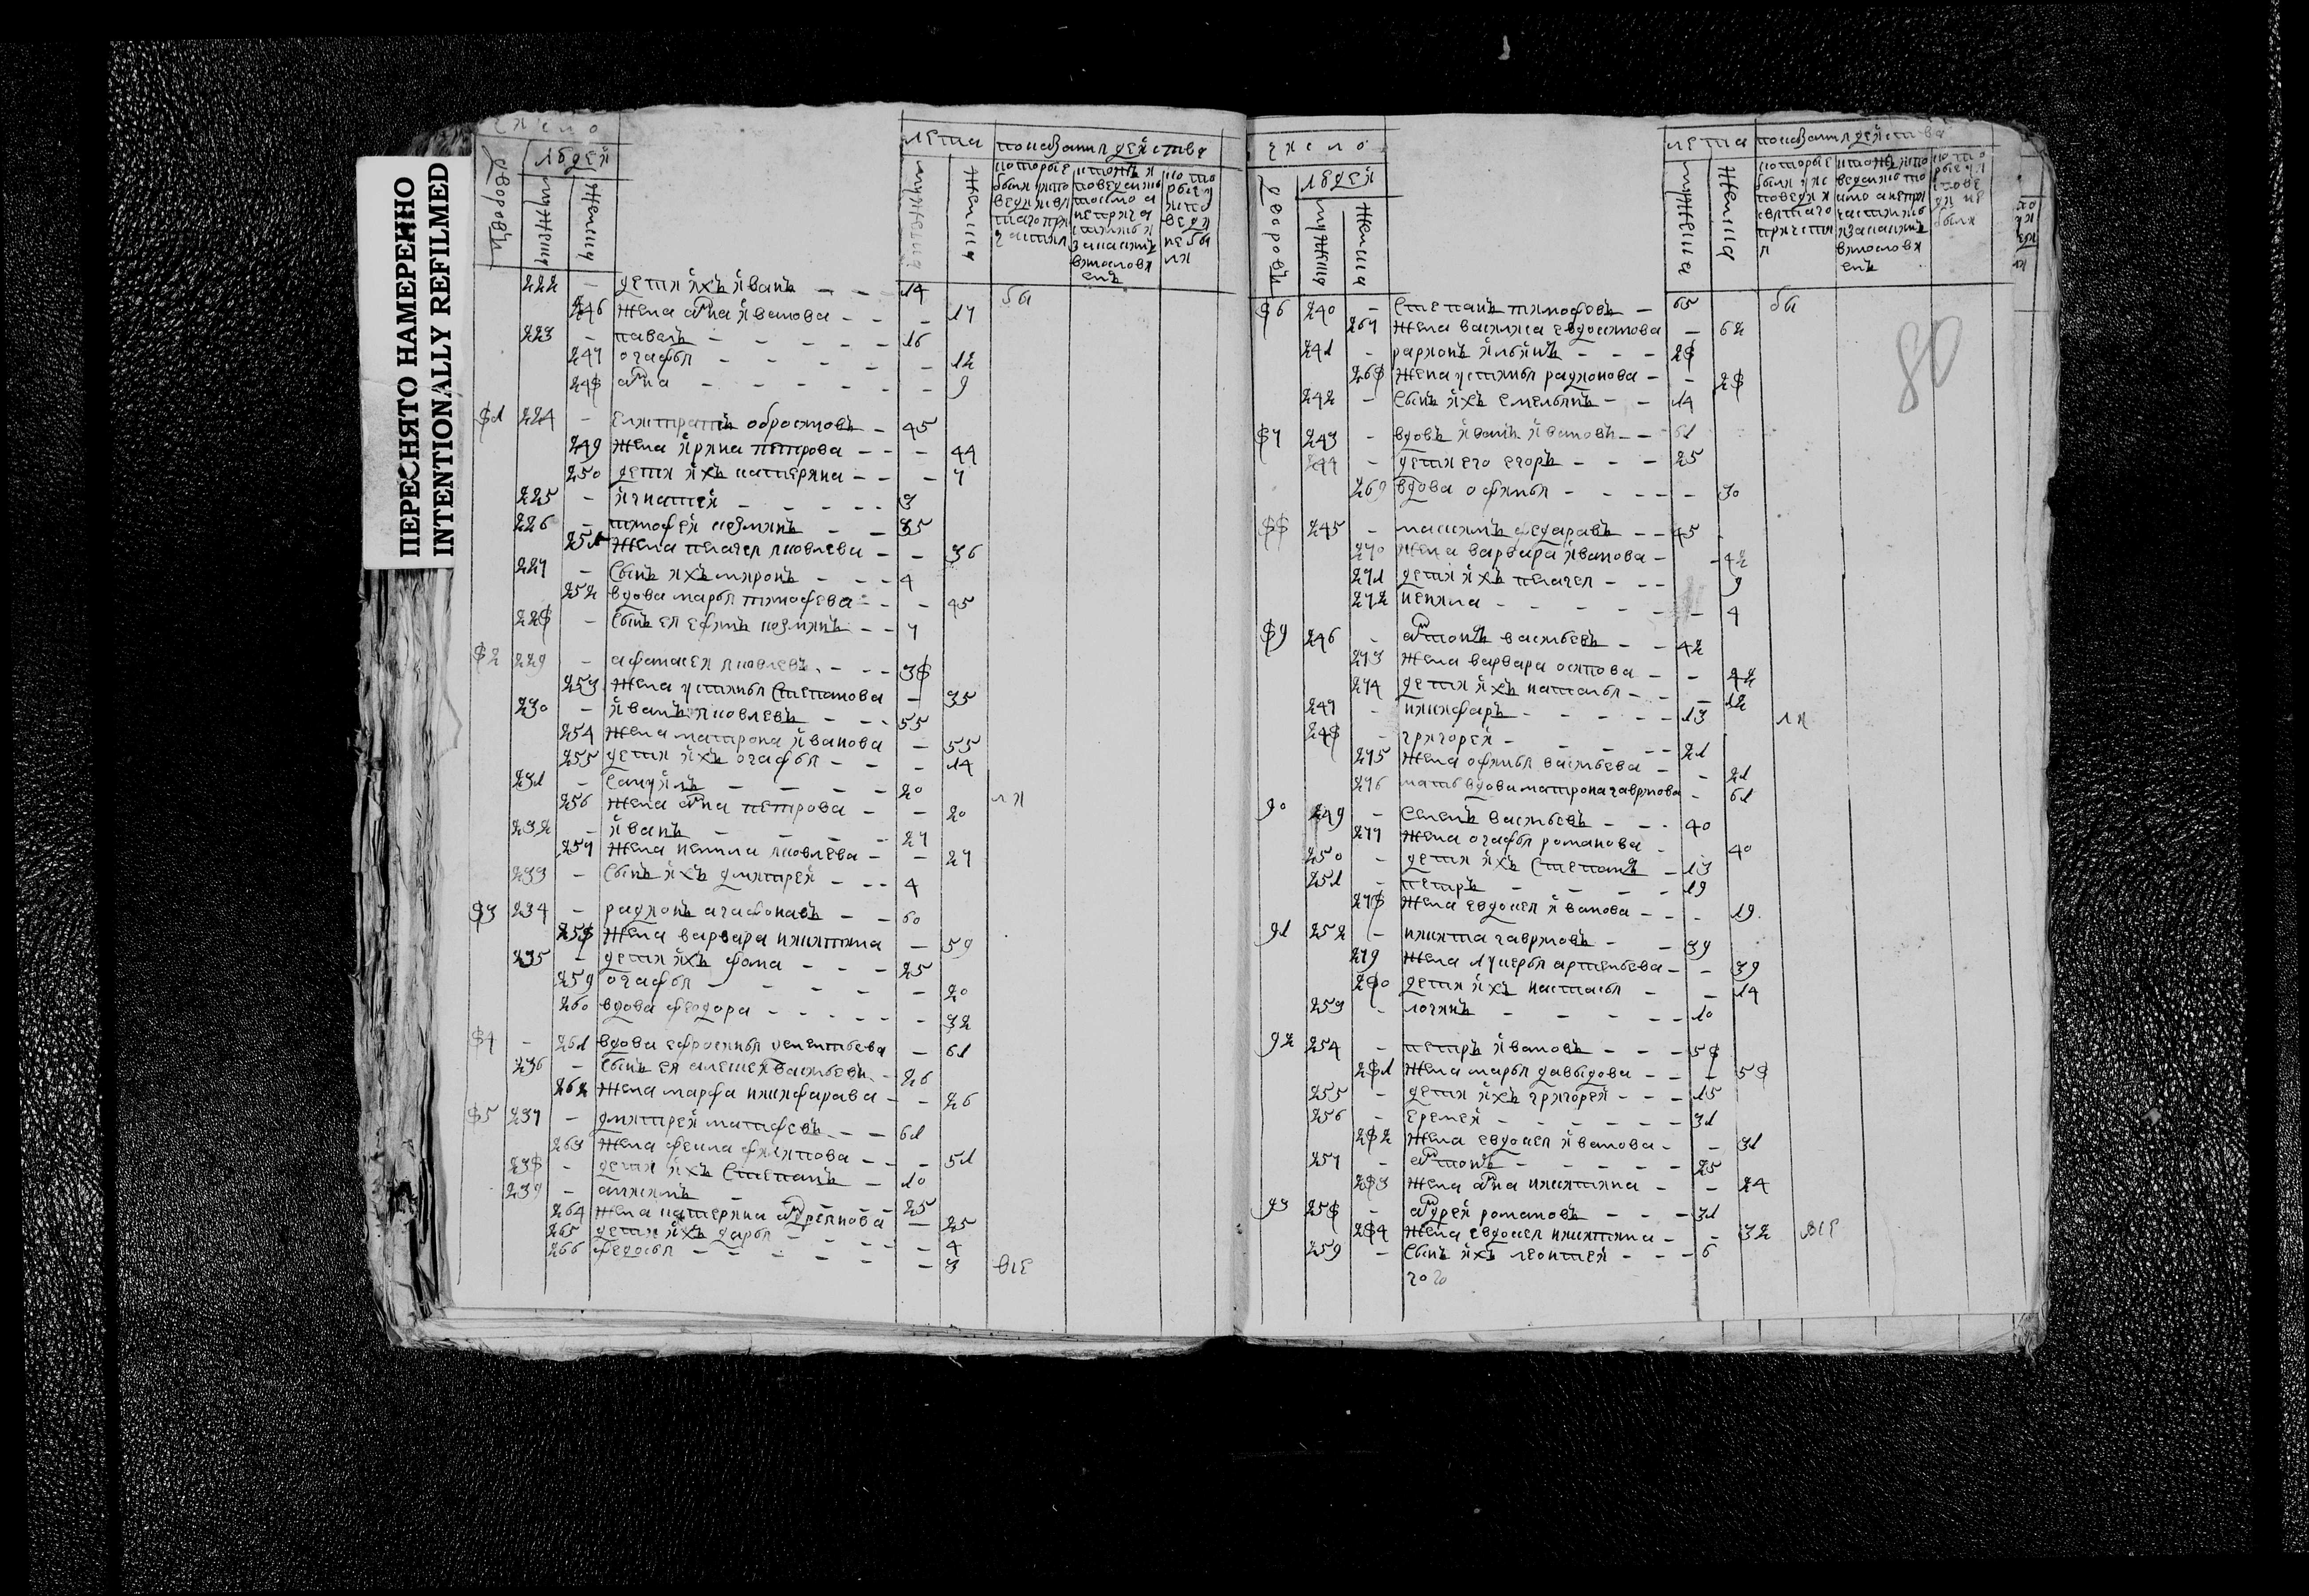 ПЕРЕСНЯТО НАМЕРЕННО
INTENTIONALLY REFILMED
число
дворовъ
людей
мужеска
женска
лета
мужеска
женска
показания действа
которые были у исповеди и святаго причастия
222 - дети ихъ иванъ - - 14
246 жена анна иванова - - - 17
бы
223 - павелъ - - - - - 16
247 огафья - - - - - - 12
248 анна - - - - - - - 9
81 224 - елистратъ обросимовъ - 45
249 жена ирина петрова - - - 44
250 дети ихъ катерина - - - 7
225 - игнатей - - - - - 3
226 - тимофей козминъ - - 35
251 жена пелагея яковлева - - 36
227 - сынъ ихъ миронъ - - - 4
252 вдова марья тимофева - - - 45
228 - сынъ ея ефимъ козминъ - - 7
82 229 - афонасей яковлевъ - - - 38
253 жена устинья степанова - 35
230 - иванъ яковлевъ - - - 55
254 жена матрона иванова - 55
255 дети ихъ огафья - - - 14
231 - самуилъ - - - - - 20
256 жена анна петрова - - 20
ли
232 - иванъ - - - - 27
257 жена ненила яковлева - - 27
233 - сынъ ихъ дмитрей - - - 4
83 234 - радионъ агафоновъ - - 60
258 жена варвара никитина - 59
235 - дети ихъ фома - - - 25
259 огафья - - - - - - 20
260 вдова феодора - - - - - - 32
84 - 261 вдова ефросинья - 61
236 - сынъ ея алексей васильевъ - 26
262 жена марфа никифарава - - 26
85 237 - дмитрей матфевъ - - 61
263 жена фекла филипова - - - 51
238 - дети ихъ степанъ - 10
239 - - - - 25
264 жена катерина андреянова - 25
265 дети ихъ дарья - - - - 4
266 федосья - - - - - - - 3
все
число
дворовъ
людей
мужеска
женска
лета
мужеска
женска
показания действа
80
86 240 - степанъ тимофевъ - 65
бы
267 жена василиса евдокимова - 62
241 - радионъ ильинъ - - - 28
268 жена устинья радионова - - 28
242 - сынъ ихъ емельянъ - - 14
87 243 - вдовъ иванъ ивановъ - - 61
244 - дети его егоръ - - - 25
269 вдова офимья - - - - - 30
88 245 - максимъ федаравъ - - 45
270 жена варвара иванова - - 42
271 дети ихъ пелагея - - - 9
272 ненила - - - - - - - 4
89 246 - антонъ васильевъ - - 42
273 жена варвара осипова - - 42
274 дети ихъ наталья - - - 12
247 - никифаръ - - - - - 13
ли
248 - григорей - - - - 21
275 жена офимья васильева - - 21
276 мать вдова матрона гаврилова - 61
90 249 - семенъ васильевъ - - - 40
277 жена огафья романова - 40
250 - дети ихъ степанъ - 13
251 - петръ - - - - 19
278 жена евдокея иванова - - - 19
91 252 - никита гавриловъ - - 39
279 жена лукерья артемьева - - 39
280 дети ихъ настасья - - 14
253 - логинъ - - - - - 10
92 254 - петръ ивановъ - - - 58
281 жена марья давыдова - - - 58
255 - дети ихъ григорей - - - 15
256 - еремей - - - - - - 31
282 жена евдокея иванова - - 31
257 - антонъ - - - - - 25
283 жена анна никитина - - 24
93 258 - андрей романовъ - - - 31
284 жена евдокея никитина - - 32
все
259 - сынъ ихъ леонтей - - - 6